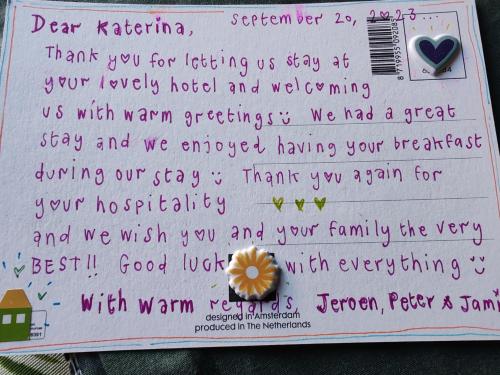 Dear Katerina, September 20, 2023...
Thank you for letting us stay at
your lovely hotel and welcoming
us with warm greetings We had a great
stay and we enjoyed having your breakfast
during our stay Thank you again for
your hospitality
and we wish you and your family the very
BEST!! Good luck with everything
With warm regards, Jeroen, Peter & Jami
designed in Amsterdam
produced in The Netherlands